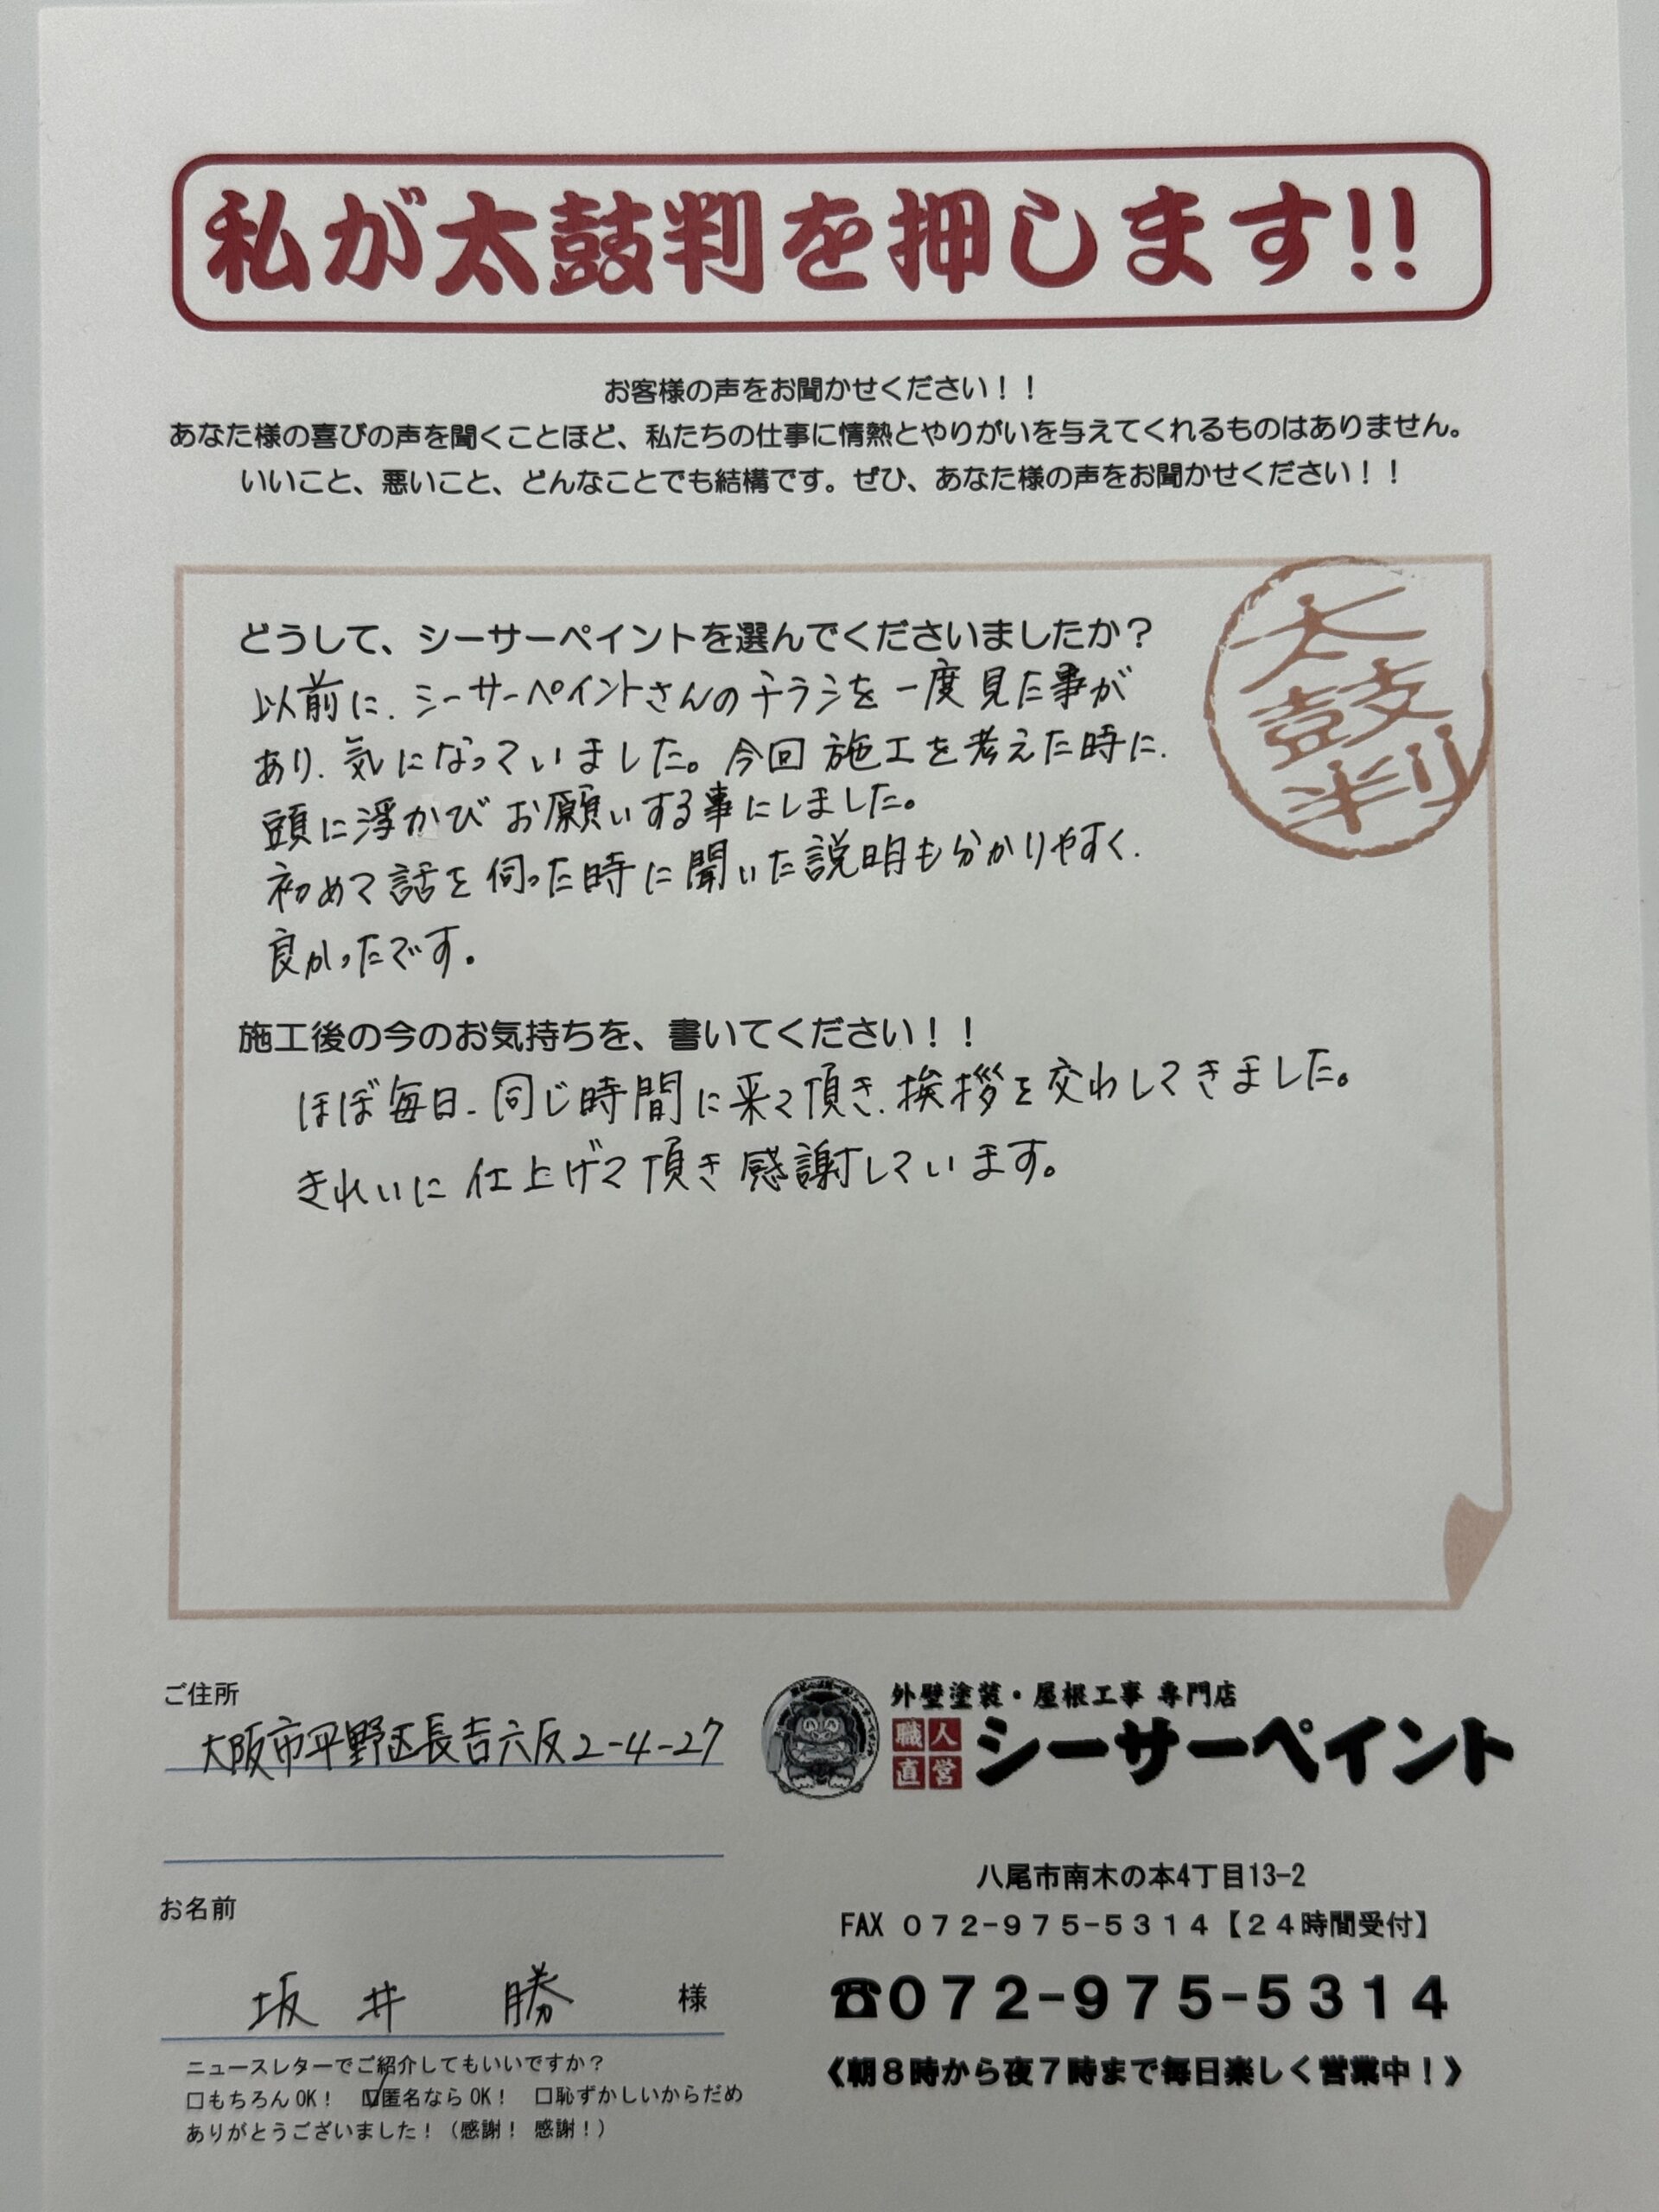 私が太鼓判を押します!!
お客様の声をお聞かせください！！
あなた様の喜びの声を聞くことほど、私たちの仕事に情熱とやりがいを与えてくれるものはありません。
いいこと、悪いこと、どんなことでも結構です。ぜひ、あなた様の声をお聞かせください！！
太鼓判
どうして、シーサーペイントを選んでくださいましたか？
以前に、シーサーペイントさんのチラシを一度見た事が
あり、気になっていました。今回施工を考えた時に、
頭に浮かびお願いする事にしました。
初めて話を伺った時に聞いた説明も分かりやすく、
良かったです。
施工後の今のお気持ちを、書いてください！！
ほぼ毎日、同じ時間に来て頂き、挨拶を交わしてきました。
きれいに仕上げて頂き感謝しています。
ご住所
大阪市平野区長吉六反2-4-27
お名前
坂井 勝 様
ニュースレターでご紹介してもいいですか？
□もちろんOK！ ☑匿名ならOK！ □恥ずかしいからだめ
ありがとうございました！（感謝！ 感謝！）
外壁塗装・屋根工事 専門店
職人直営 シーサーペイント
八尾市南木の本4丁目13-2
FAX ０７２−９７５−５３１４【２４時間受付】
☎０７２−９７５−５３１４
《朝８時から夜７時まで毎日楽しく営業中！》